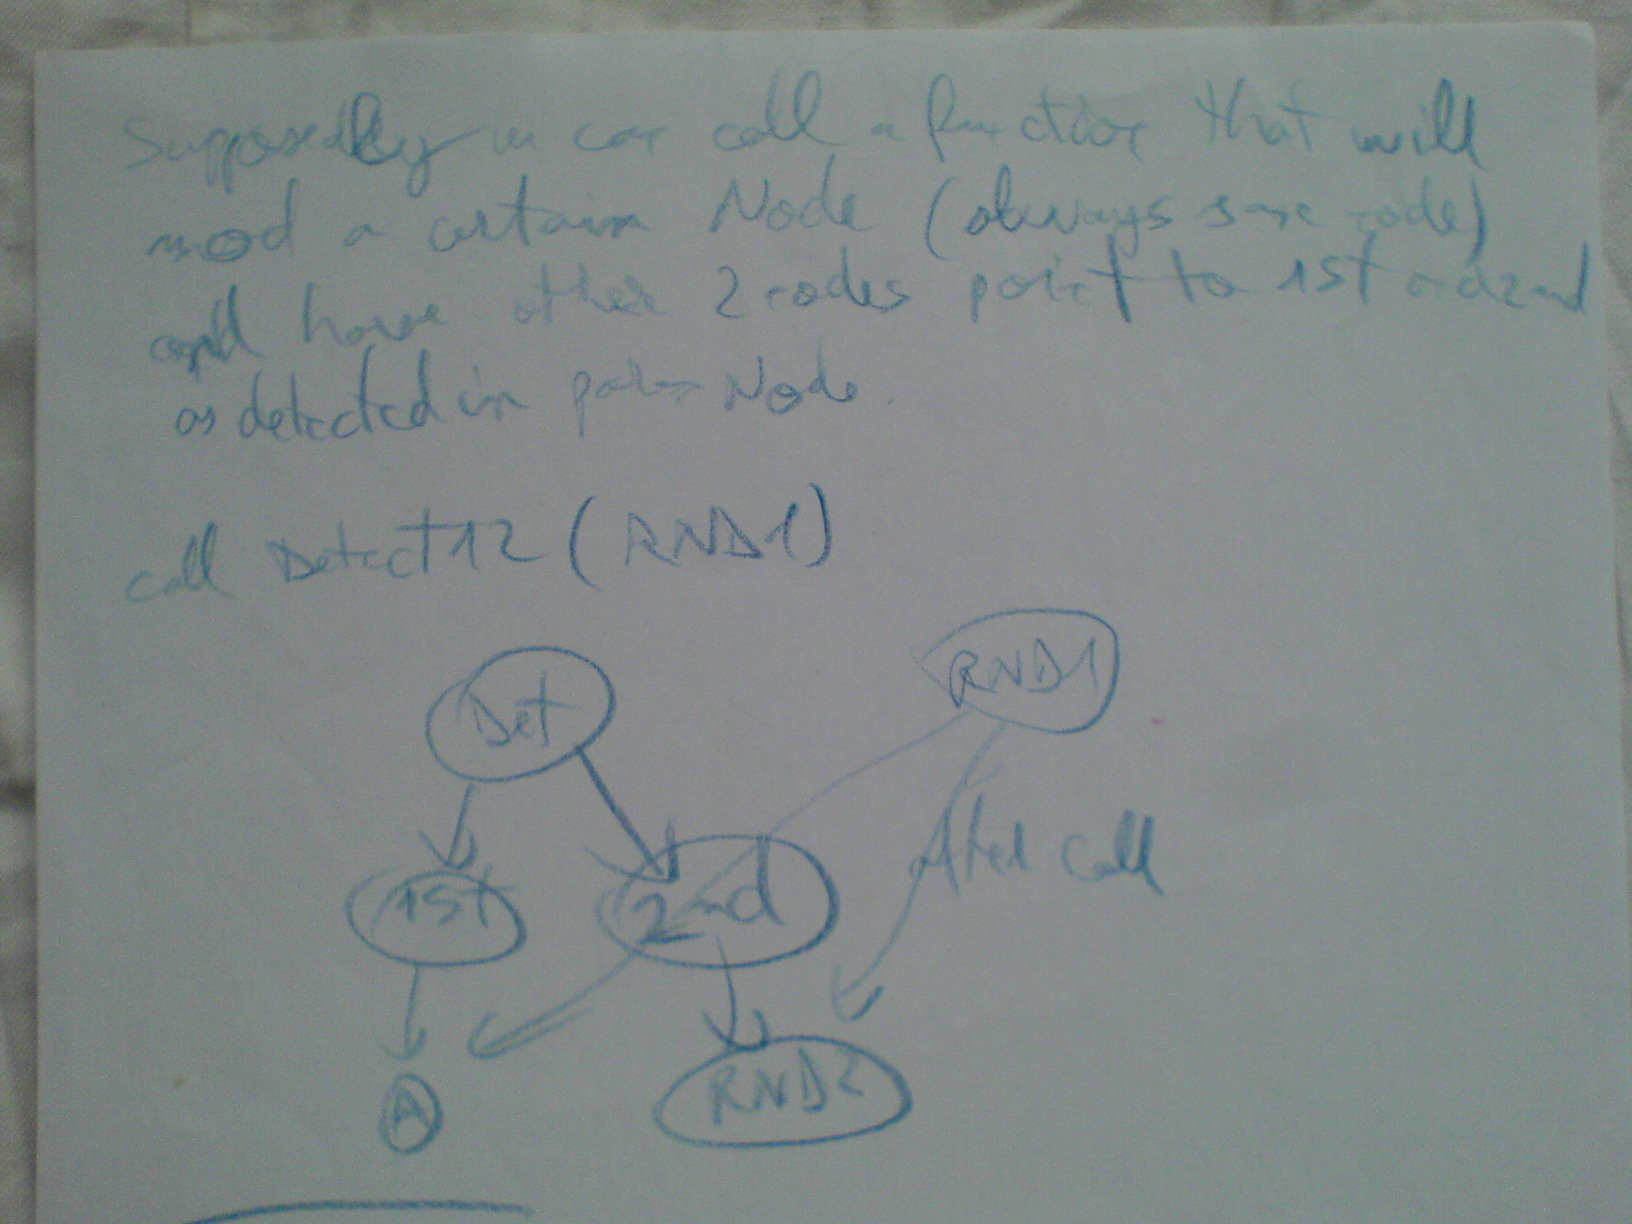 Supposedly we can call a function that will
mod a certain Node (always same node)
and have other 2 nodes point to 1st and 2nd
as detected in Node.
call Detect12 (RND1)
Det
RND1
1st
2nd
After call
A
RND2